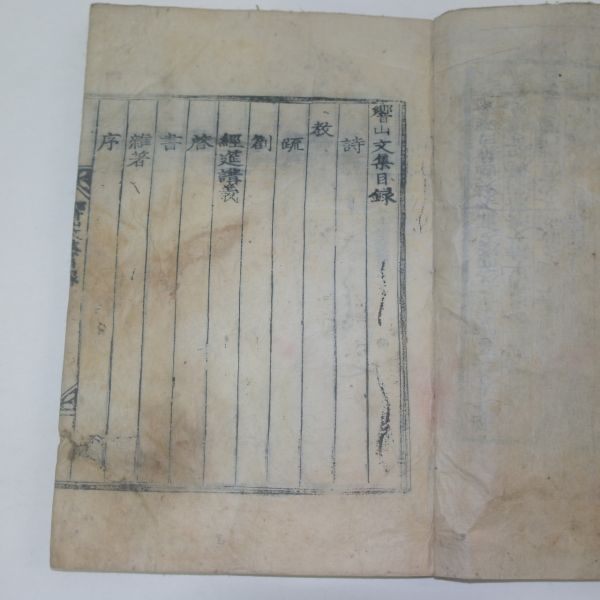 響山文集目録
詩
教
疏
劄
經筵講義
啓
書
雜著
序